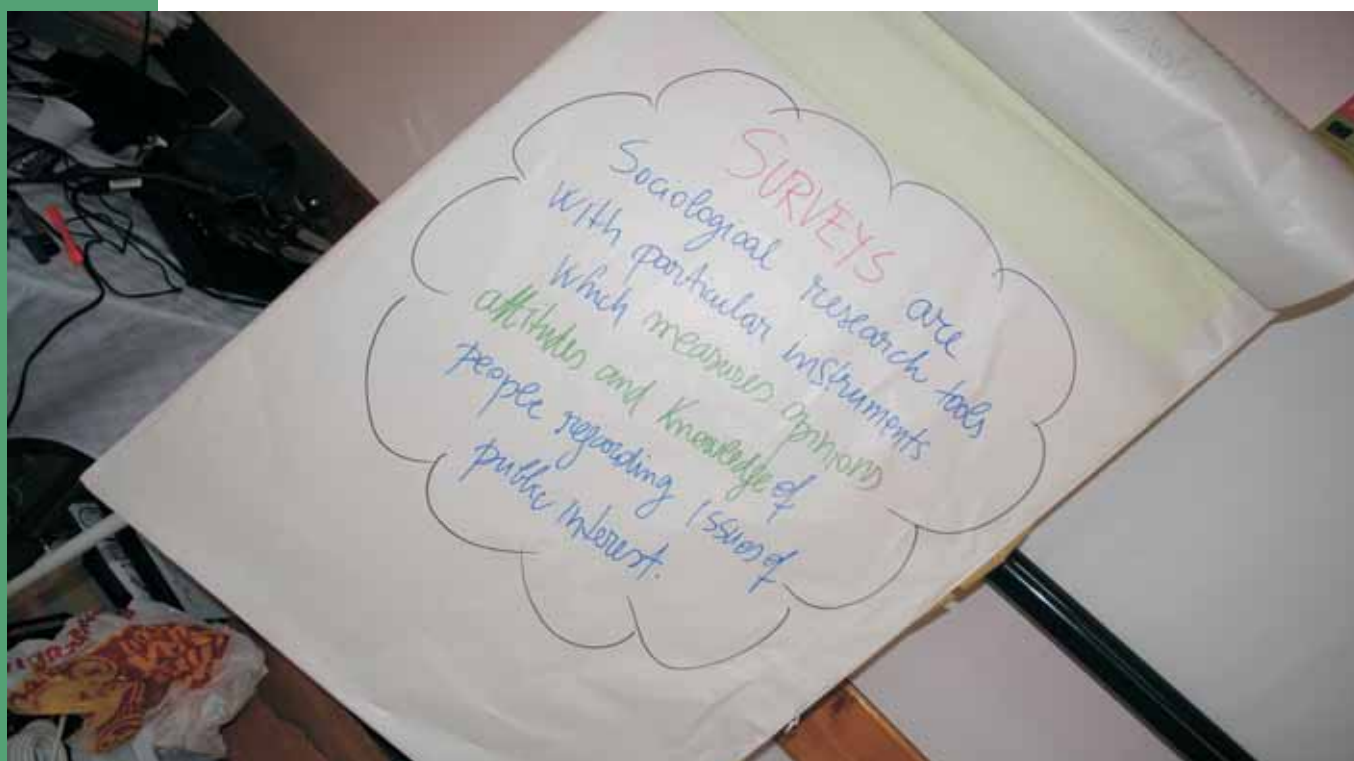 SURVEYS
Sociological research are
with particular instruments tools
which measures opinions
attitudes and knowledge of
people regarding issues of
public interest.